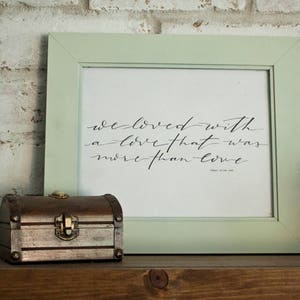 we loved with
a love that was
more than love